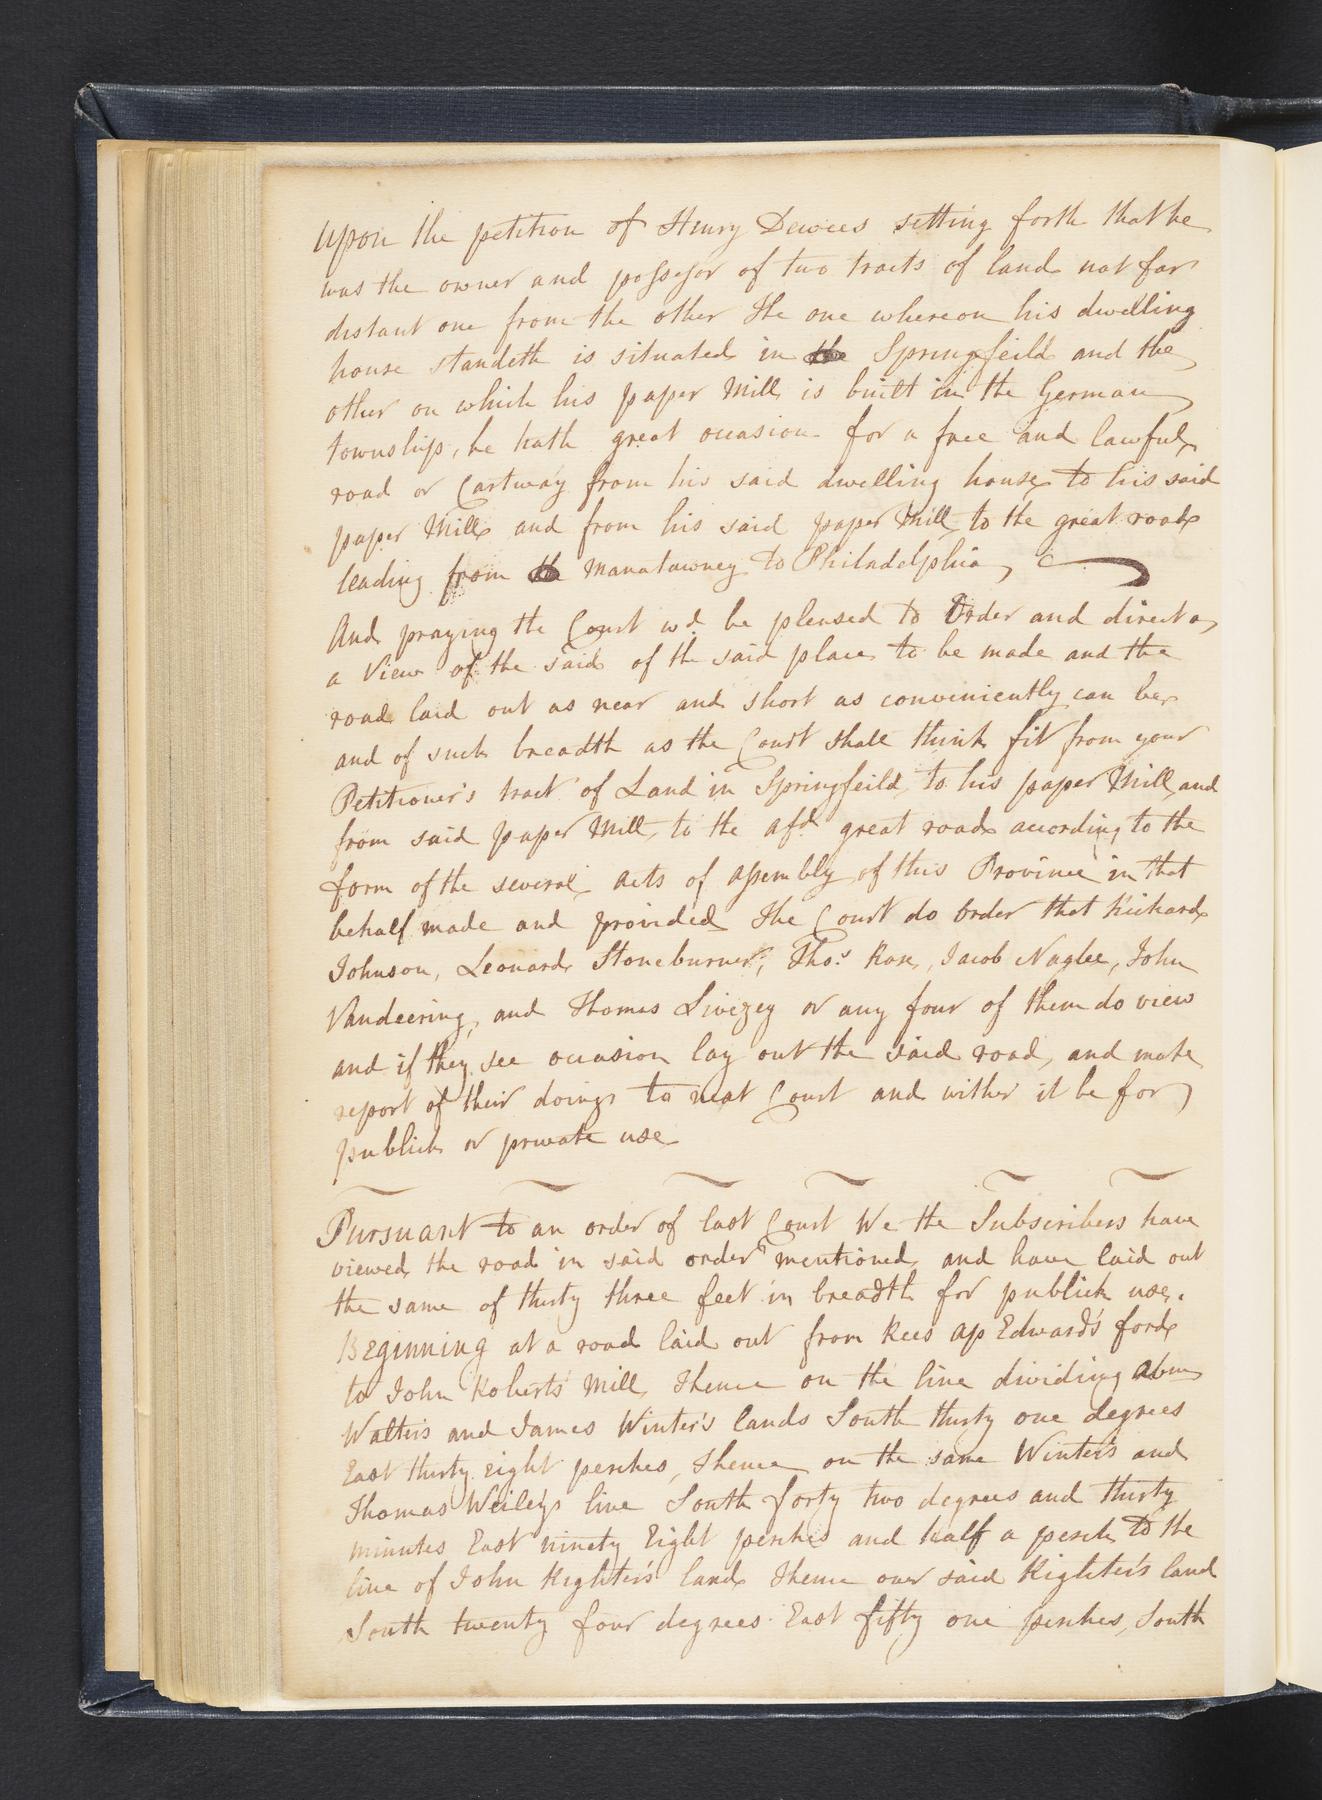 Upon the petition of Henry Dewees setting forth that he
was the owner and possessor of two tracts of land not far
distant one from the other The one whereon his dwelling
house standeth is situated in the Springfeild and the
other on which his paper Mill is built in the German
township, he hath great occasion for a free and lawful
road or Cartway from his said dwelling house to his said
paper Mill and from his said paper Mill to the great road
leading from the Manatawney to Philadelphia,
And praying the Court wd be pleased to Order and direct a
a View of the said of the said place to be made and the
road laid out as near and short as conveniently can be
and of such breadth as the Court shall think fit from your
Petitioner's tract of Land in Springfeild to his paper Mill and
from said paper Mill to the afd great road according to the
form of the several acts of assembly of this Province in that
behalf made and provided The Court do order that Richard
Johnson, Leonard Stoneburner, Thos Rose, Jacob Naglee, John
Vandeering, and Thomas Livezey or any four of them do view
and if they see occasion lay out the said road, and make
report of their doings to next Court and wither it be for
publick or private use
Pursuant to an order of last Court We the Subscribers have
viewed the road in said order mentioned and have laid out
the same of thirty three feet in breadth for publick use.
Beginning at a road laid out from Rees ap Edward's ford
to John Roberts' Mill, Thence on the line dividing
Walter's and James Winter's lands South thirty one degrees
East thirty eight perches, Thence on the same Winter's and
Thomas Weiley's line South forty two degrees and thirty
minutes East ninety Eight perches and half a perch to the
line of John Righter's land Thence over said Righter's land
South twenty four degrees East fifty one perches, South